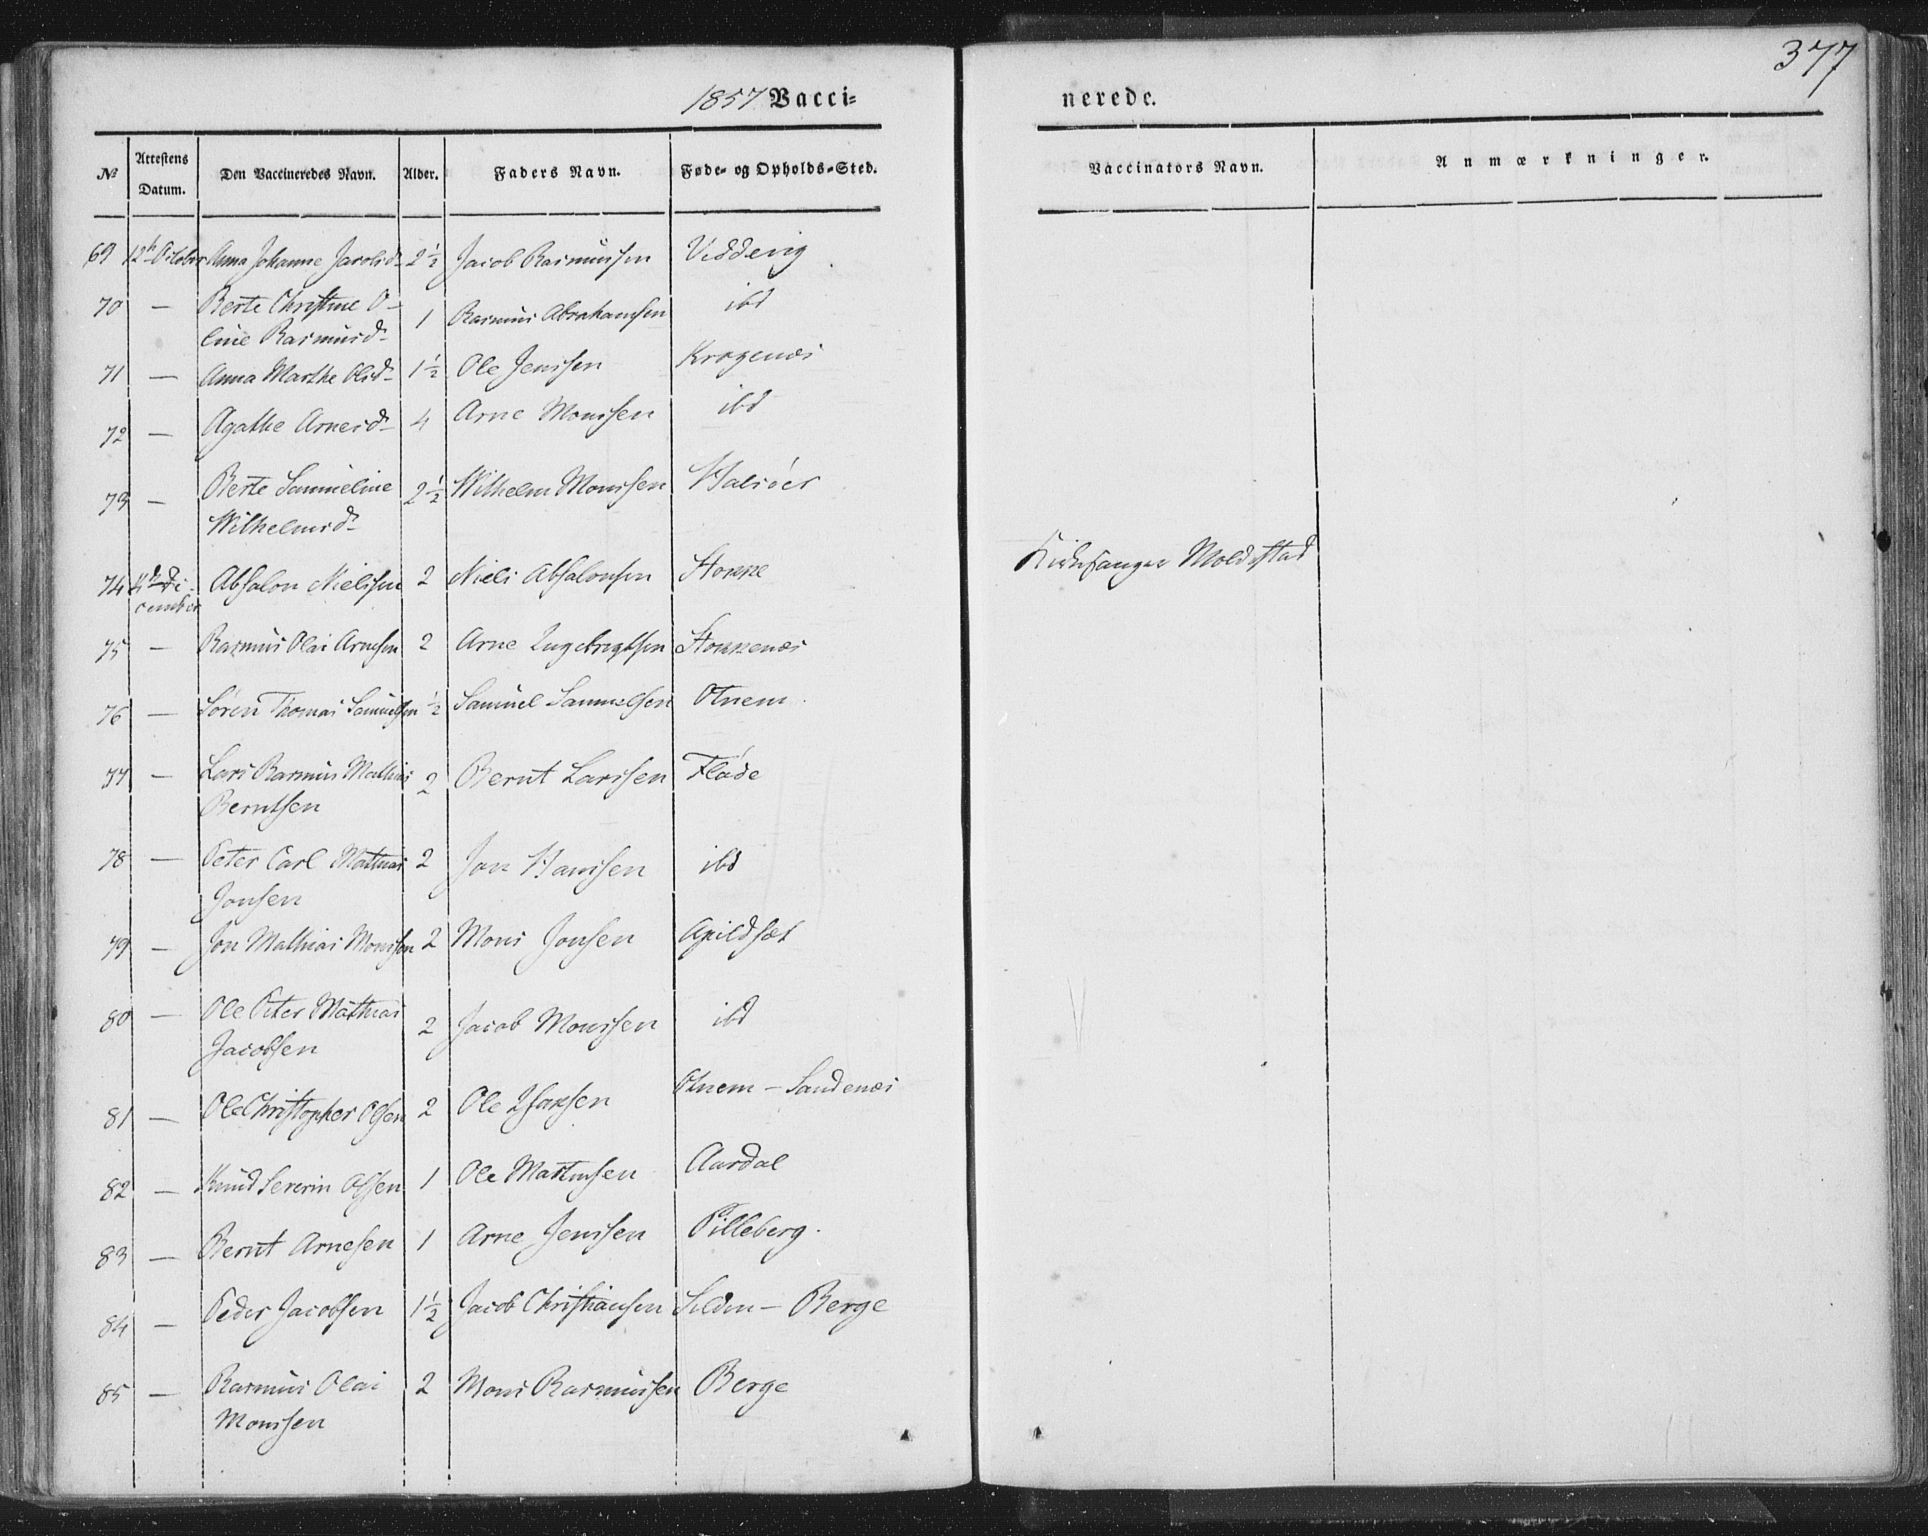 377
1857 Vacci=
nerede.
No Attestens Datum. Den Vaccineredes Navn. Alder. Faders Navn. Føde- og Opholds-Sted. Vaccinators Navn. Anmærkninger.
69 12te October Anna Johanne Jacobsd. 2 1/2 Jacob Rasmussen
70 — Berte Christine O-
line Rasmusd. 1 Rasmus Abrahamsen ibd
71 — Anna Marthe Olsd. 1 1/2 Ole Jenssen Krogenæs
72 — Agathe Arnesd. 4 Arne Monssen ibd
73 — Berte Samueline
Wilhelmsd. 2 1/2 Wilhelm Monssen Halsöer
74 De-
cember Absalon Nielssen 2 Niels Absalonsen Stokke Kirkesanger Moldestad
75 — Rasmus Olai Arnesen 2 Arne Ingebrigtsen Stokkenæs
76 — Sören Thomas Samuelsen 1/2 Samuel Samuelsen Otnem.
77 — Lars Rasmus Mathias
Berntsen 2 Bernt Larssen Flöde
78 — Peter Carl Mathias
Jonsen 2 Jon Hanssen ibd
79 — Jon Mathias Monssen 2 Mons Jonsen Apildsæt
80 — Ole Peter Mathias
Jacobsen 2 Jacob Monssen ibd
81 — Ole Christopher Olsen 2 Ole Otnem — Sandenæs
82 — Knud Severin Olsen 1 Ole Martinsen Aardal
83 — Bernt Arnesen 1 Arne Jenssen Pilleberg.
84 — Peder Jacobsen 1 1/2 Jacob Christiansen Selden — Berge
85 — Rasmus Olai
Monssen 2 Mons Rasmussen Berge